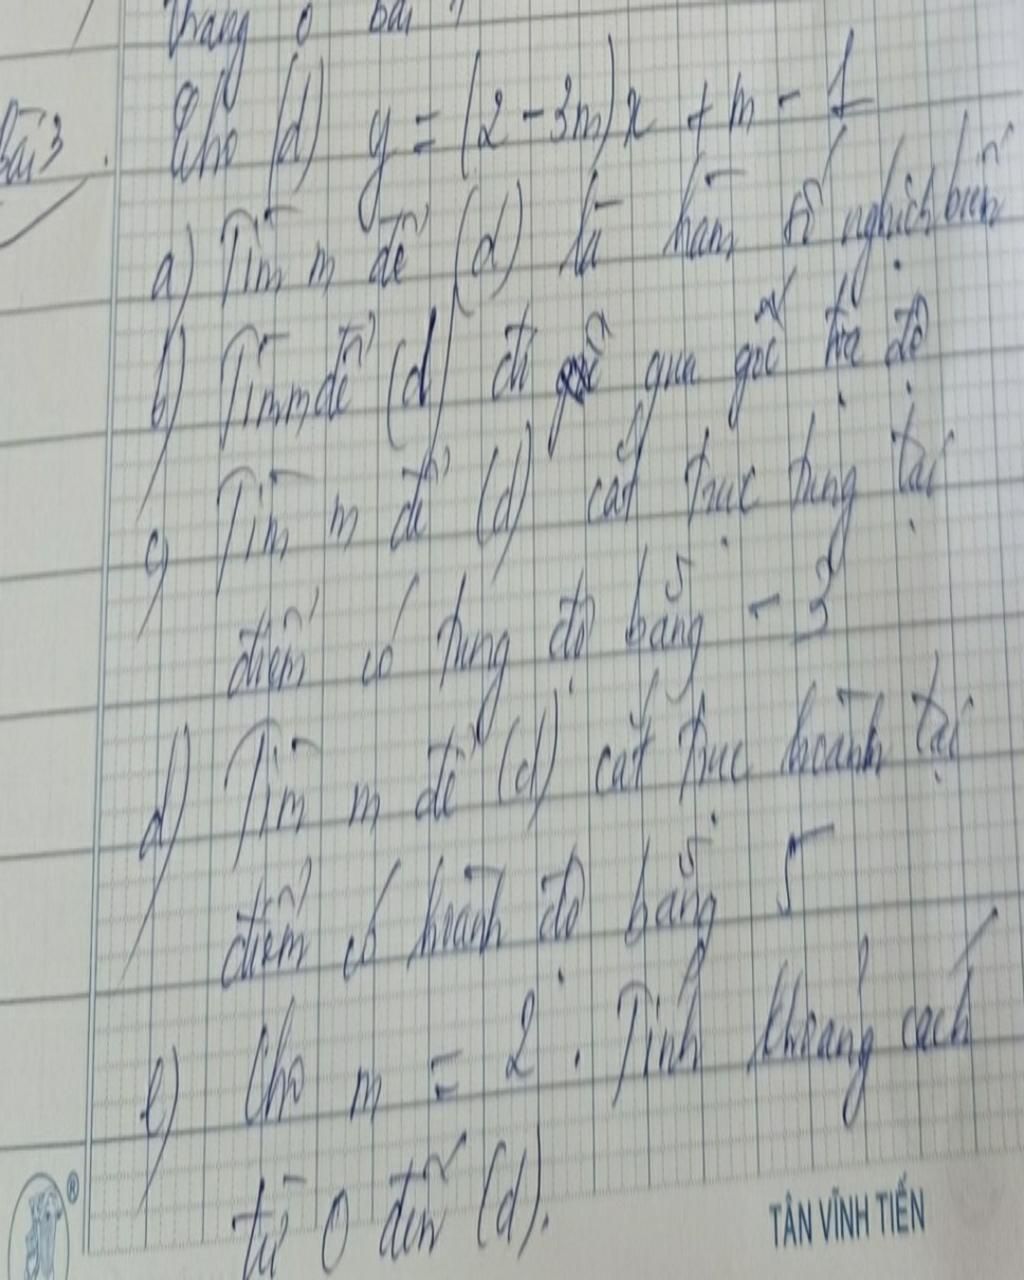 Trang 0 bài
Bài 3. Cho (d) y = (2 - 3m)x + m - 1
a) Tìm m để (d) là hàm số nghịch biến
b) Tìm m để (d) đi qua gốc toạ độ
c) Tìm m để (d) cắt trục tung tại
điểm có tung độ bằng - 3
d) Tìm m để (d) cắt trục hoành tại
điểm có hoành độ bằng 5
e) Cho m = 2. Tính khoảng cách
từ O đến (d).
®
TÂN VĨNH TIẾN